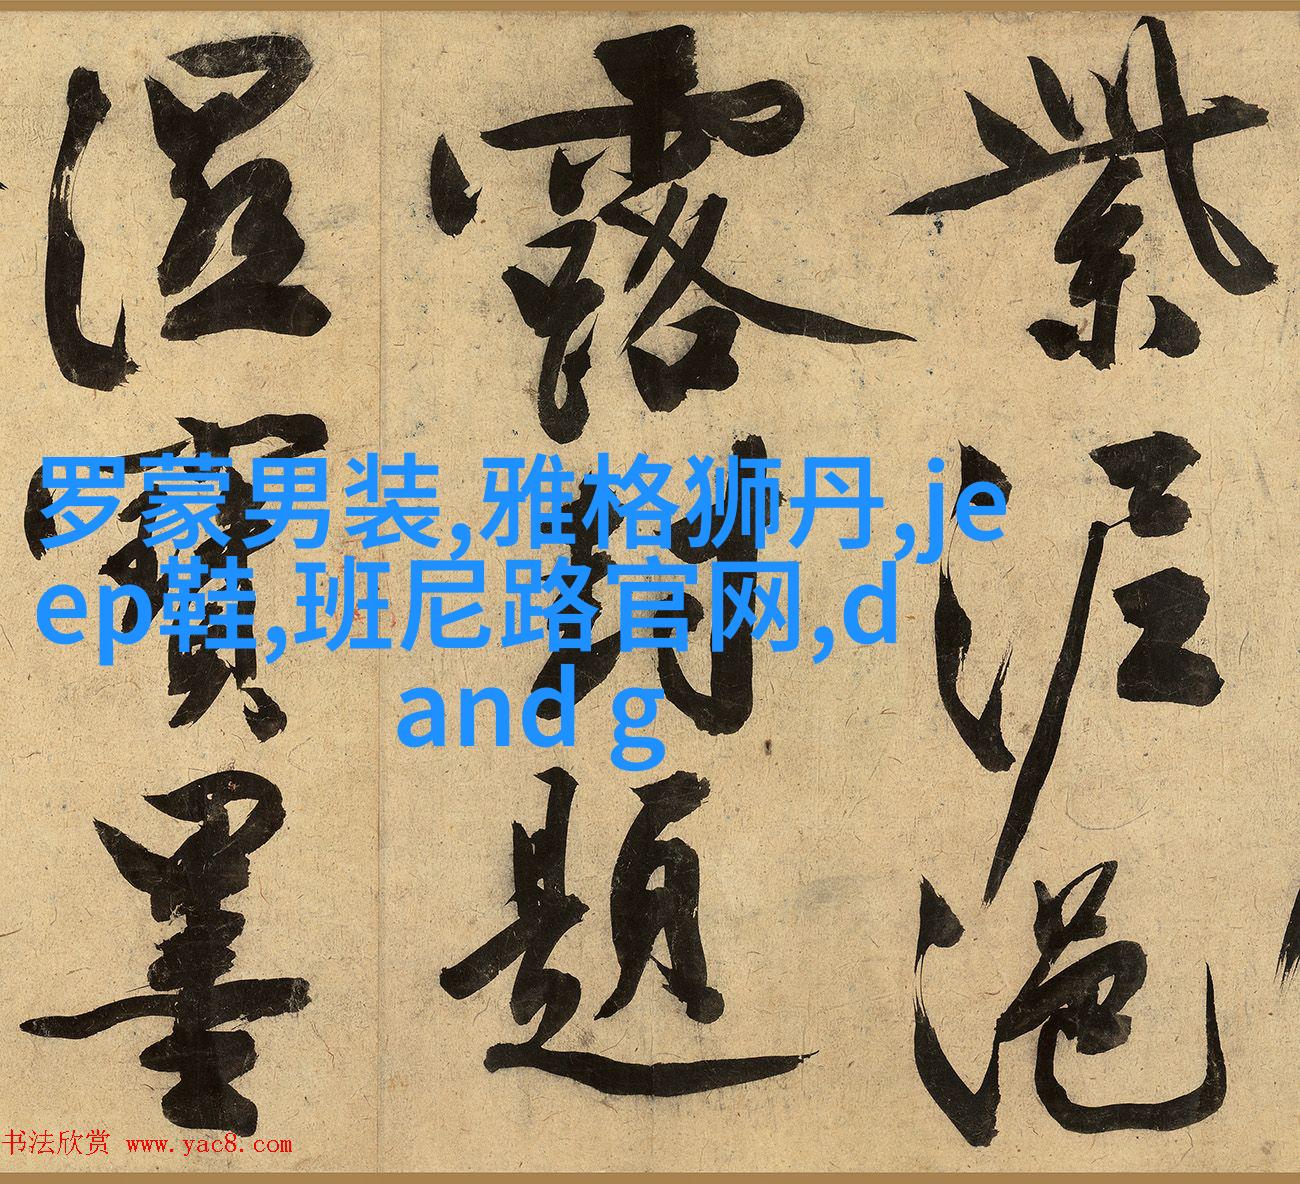 紫泥浥
露封題
濕寶墨
罗蒙男装,雅格狮丹,je
ep鞋,班尼路官网,d
and g
书法欣赏 www.yac8.com